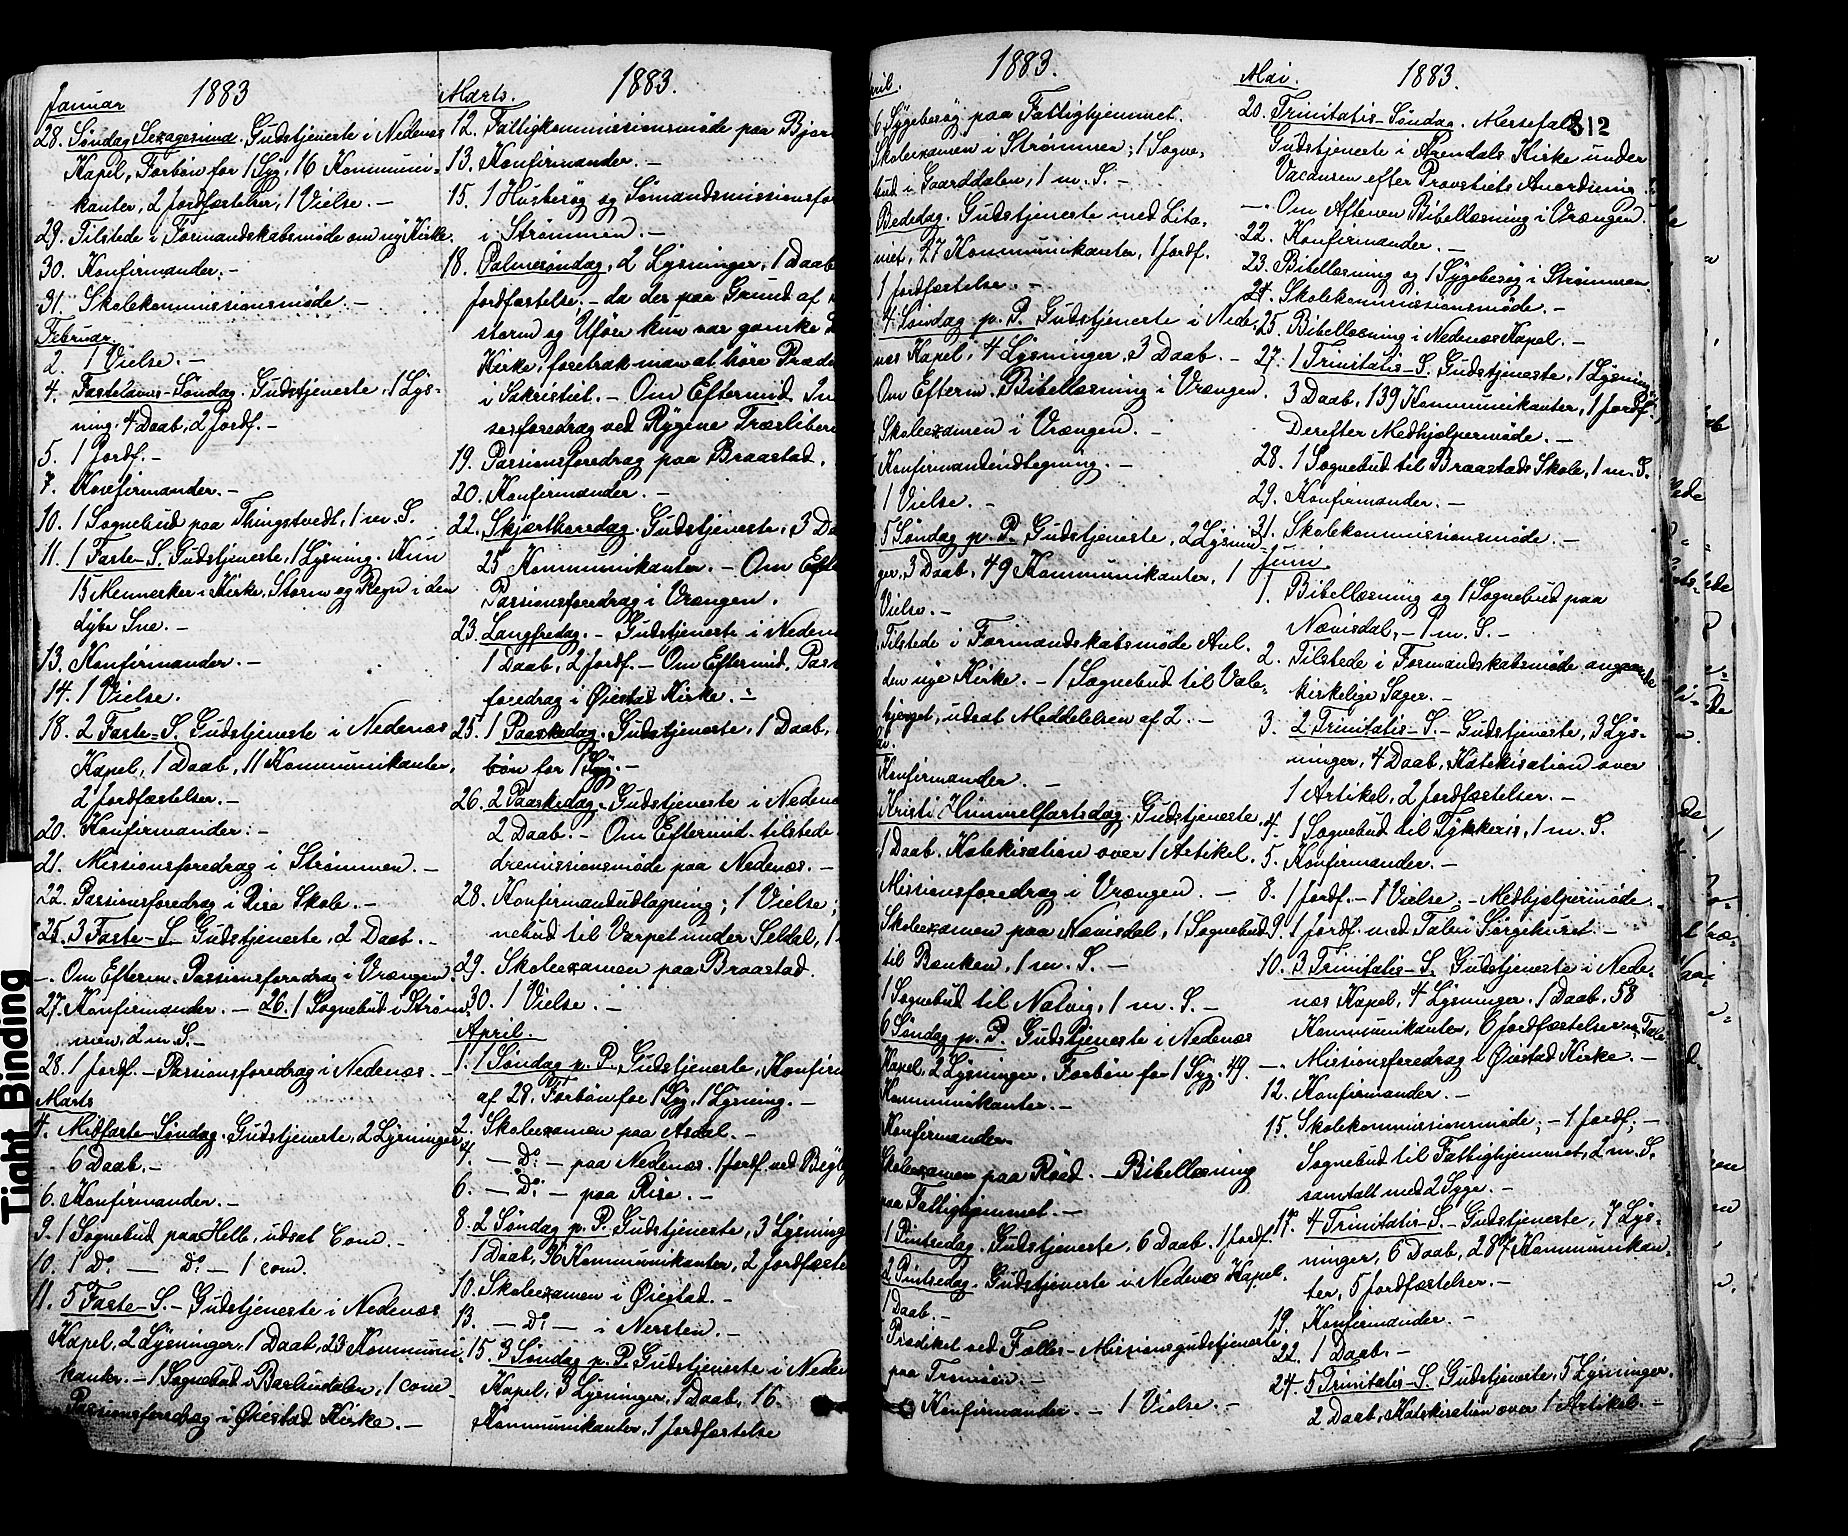 Januar 1883
28. Søndag Sexagesima. Gudstjeneste i Nedenæs
Kapel, Forbøn for 1 Syg, 16 Kommuni-
kanter, 2 Jordfæstelser, 1 Vielse. –
29. Tilstede i Formandskabsmøde om ny Kirke.
30. Konfirmander. –
31. Skolekommissionsmøde. –
Februar
2. 1 Vielse. –
4. Fastelavns-Søndag. Gudstjeneste, 1 Lys-
ning, 4 Daab, 2 Jordf. –
5. 1 Jordf. –
7. Konfirmander. –
10. 1 Sognebud paa Thingstvedt, 1 m. S.
11. 1 Faste-S. Gudstjeneste, 1 Lysning. Kun
15 Mennesker i Kirke, Storm og Regn i den
dybe Sne. –
13. Konfirmander. –
14. 1 Vielse.
18. 2 Faste-S. Gudstjeneste i Nedenæs
Kapel, 1 Daab, 11 Kommunikanter,
2 Jordfæstelser. –
20. Konfirmander. –
21. Missionsforedrag i Strømmen. –
22. Passionsforedrag i Rise Skole. –
25. 3 Faste-S. Gudstjeneste, 2 Daab. –
–. Om Efterm. Passionsforedrag i Vrængen
27. Konfirmander. – 26. 1 Sognebud i Strøm-
men, 2 m. S. –
28. 1 Jordf. – Passionsforedrag i Nedenæs. –
Marts
4. Midfaste-Søndag. Gudstjeneste, 2 Lysninger,
6 Daab. –
6. Konfirmander. –
9. 1 Sognebud paa Helle, udsat Com. –
10. 1 Do – Do – 1 com.
11. 5 Faste-S. – Gudstjeneste i Nedenæs
Kapel, 2 Lysninger, 1 Daab, 23 Kommuni-
kanter. – 1 Sognebud i , 1 com.
Passionsforedrag i Øiestad Kirke. –
Marts. 1883.
12. Fattigkommissionsmøde paa Bjor
13. Konfirmander. –
15. 1 Husbesøg og Sømandsmissionsfo
i Strømmen. –
18. Palmesøndag, 2 Lysninger, 1 Daab
Jordfæstelse. – da der paa Grund af
storm og Uføre kun var ganske
Kirke, foretrak man at høre Præde
i Sakristiet. – Om Eftermid.
sesforedrag ved Rygene Træsliberi
19. Passionsforedrag paa Braastad.
20. Konfirmander. –
22. Skjærthorsdag. Gudstjeneste, 3 Da
25 Kommunikanter. – Om Efte
Passionsforedrag i Vrængen.
23. Langfredag. – Gudstjeneste i Nedenæ
1 Daab, 2 Jordf. – Om Eftermid. Pas
foredrag i Øiestad Kirke. –
25. 1 Paaskedag. Gudstjeneste, 1 Daab,
bøn for 1 Syg. –
26. 2 Paaskedag. Gudstjeneste i Nedenæ
2 Daab. – Om Eftermid. tilstede
dremissionsmøde paa Nedenæs. –
28. Konfirmandudtagning; 1 Vielse;
nebud til Varpet under Seldal, 1
29. Skoleexamen paa Braastad.
30. 1 Vielse. –
April.
1. 1 Søndag p. P. Gudstjeneste, Konfirm
af 28, Forbøn for 1 Syg, 1 Lysning. –
2. Skoleexamen paa Asdal. –
4. – Do – paa Nedenæs. 1 Jordf. ved
6. – Do – paa Rise. –
8. 2 Søndag p. P. Gudstjeneste, 3 Lysning
1 Daab, 96 Kommunikanter, 2 Jordfæste
10. Skoleexamen i Øiestad. –
13. – Do – i Nersten. –
15. 3 Søndag p. P. Gudstjeneste i Neden
Kapel, 3 Lysninger, 1 Daab, 16.
Kommunikanter, 1 Jordfæstelse
1883.
ril.
6 Sygebesøg paa Fattighjemmet.
Skoleexamen i Strømmen; 1 Sogne-
bud i Gaarddalen, 1 m. S. –
Bededag. Gudstjeneste med Lita-
niet, 27 Kommunikanter, 1 Jordf.
1 Jordfæstelse. –
4 Søndag p. P. Gudstjeneste i Nede-
næs Kapel, 4 Lysninger, 3 Daab. –
Om Efterm. Bibellæsning i Vrængen.
Skoleexamen i Vrængen. –
Konfirmandindtegning. –
1 Vielse. –
5 Søndag p. P. Gudstjeneste, 2 Lysnin-
ger, 3 Daab, 49 Kommunikanter, 1
Vielse. –
Tilstede i Formandskabsmøde Anl.
den nye Kirke. – 1 Sognebud til Vale-
bjerget, udsat Meddelelsen af 2. –
Konfirmander. –
Kristi Himmelfartsdag. Gudstjeneste,
1 Daab, Katekisation over 1 Artikel.
Missionsforedrag i Vrængen. –
Skoleexamen paa Nævisdal, 1 Sognebud
til Bænken, 1 m. S. –
1 Sognebud til Natvig, 1 m. S. –
6 Søndag p. P. Gudstjeneste i Nedenæs
Kapel, 2 Lysninger, Forbøn for 1 Syg. 49.
Kommunikanter. –
Konfirmander
Skoleexamen paa Røed. – Bibellæsning
paa Fattighjemmet. –
1 Pintsedag. Gudstjeneste, 6 Daab. 1 Jordf.
2 Pintsedag. Gudstjeneste i Nedenæs Kapel.
1 Daab. –
Prædiket ved Fælles-Missionsgudstjeneste
paa Tromøen. –
Konfirmander – 1 Vielse. –
Mai. 1883.
312
20. Trinitatis-Søndag. Messefald.
Gudstjeneste i Arendals Kirke under
Vacansen efter Provstiets Anordning.
–. Om Aftenen Bibellæsning i Vrængen.
22. Konfirmander. –
23. Bibellæsning og 1 Sygebesøg i Strømmen
24. Skolekommissionsmøde. –
25. Bibellæsning i Nedenæs Kapel. –
27. 1 Trinitatis-S. Gudstjeneste, 1 Lysning,
3 Daab, 139 Kommunikanter, 1 Jordf.
Derefter Medhjælpermøde. –
28. 1 Sognebud til Braastads Skole, 1 m. S.
29. Konfirmander. –
31. Skolekommissionsmøde. –
Juni
1. Bibellæsning og 1 Sognebud paa
Nævisdal, – 1 m. S. –
2. Tilstede i Formandskabsmøde angaaende
kirkelige Sager. –
3. 2 Trinitatis-S. – Gudstjeneste, 3 Lys-
ninger, 4 Daab, Katekisation over
1 Artikel, 2 Jordfæstelser. –
4. 1 Sognebud til Tykkeris, 1 m. S.
5. Konfirmander. –
8. 1 Jordf. – 1 Vielse; – Medhjælpermøde.
9. 1 Jordf. med Tale i Sørgehuset –
10. 3 Trinitatis-S. Gudstjeneste i Nede-
næs Kapel, 4 Lysninger, 1 Daab, 58
Kommunikanter, 6 Jordfæstelser m. Tale
–. Missionsforedrag i Øiestad Kirke. –
12. Konfirmander. –
15. Skolekommissionsmøde; – 1 Jordf; –
Sognebud til Fattighjemmet, 2 m. S.
samtalt med 2 Syge. –
17. 4 Trinitatis-S. – Gudstjeneste, 7 Lys-
ninger, 6 Daab, 287 Kommunikan-
ter, 5 Jordfæstelser. –
19. Konfirmander. –
22. 1 Daab. –
24. 5 Trinitatis-S. Gudstjeneste, 5 Lysninger,
2 Daab, Katekisation over 1 Artikel. –
Tight Binding